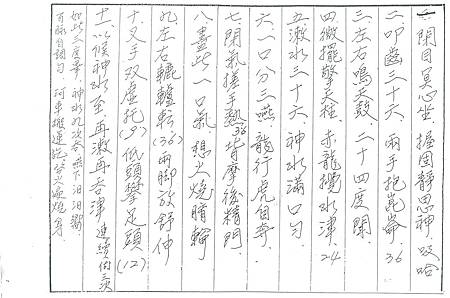 一、閉目冥心坐、握固靜思神、
二、叩齒三十六、兩手抱崑崙、36
三、左右鳴天鼓 二十四度聞、
四、微擺撼天柱、赤龍攪水津、24
五、漱水三十六、神水滿口勻、
六、一口分三嚥、龍行虎自奔、
七、閉氣搓手熱、36背摩後精門
八、盡此一口氣 想火燒臍輪
九、左右轆轤轉(36)兩腳放舒伸
十、叉手双虛托(9)低頭攀足頭(12)
十一、以候神水至、再漱再吞津 連續作三次
如此三度畢、神水九次吞 嚥下汨汨響
百脈自調勻、河車搬運訖 發火遍燒身